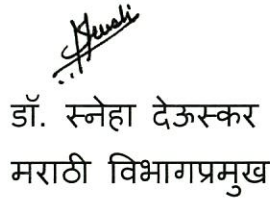 डॉ. स्नेहा देऊस्कर
मराठी विभागप्रमुख